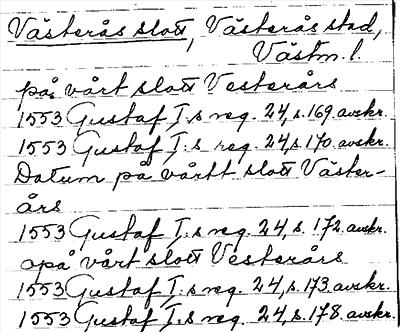 Västerås slott, Västerås stad,
Västm. l.
på vårt slott Vesterårs
1553 Gustaf I:s reg. 24, s. 169. avskr.
1553 Gustaf I:s reg. 24, s. 170. avskr.
Datum på vårtt slott Väster-
års
1553 Gustaf I:s reg. 24, s. 172. avskr.
opå vårt slott Vesterårs
1553 Gustaf I:s reg. 24, s. 173. avskr.
1553 Gustaf I:s reg. 24, s. 178. avskr.